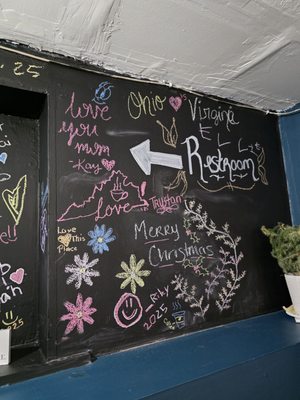 25
love
you
mum
-Kay
Ohio
Virginia
ELLE
Restroom
Love
Trystan
Love
This
Place
Merry
Christmas
-Riby
2025
25